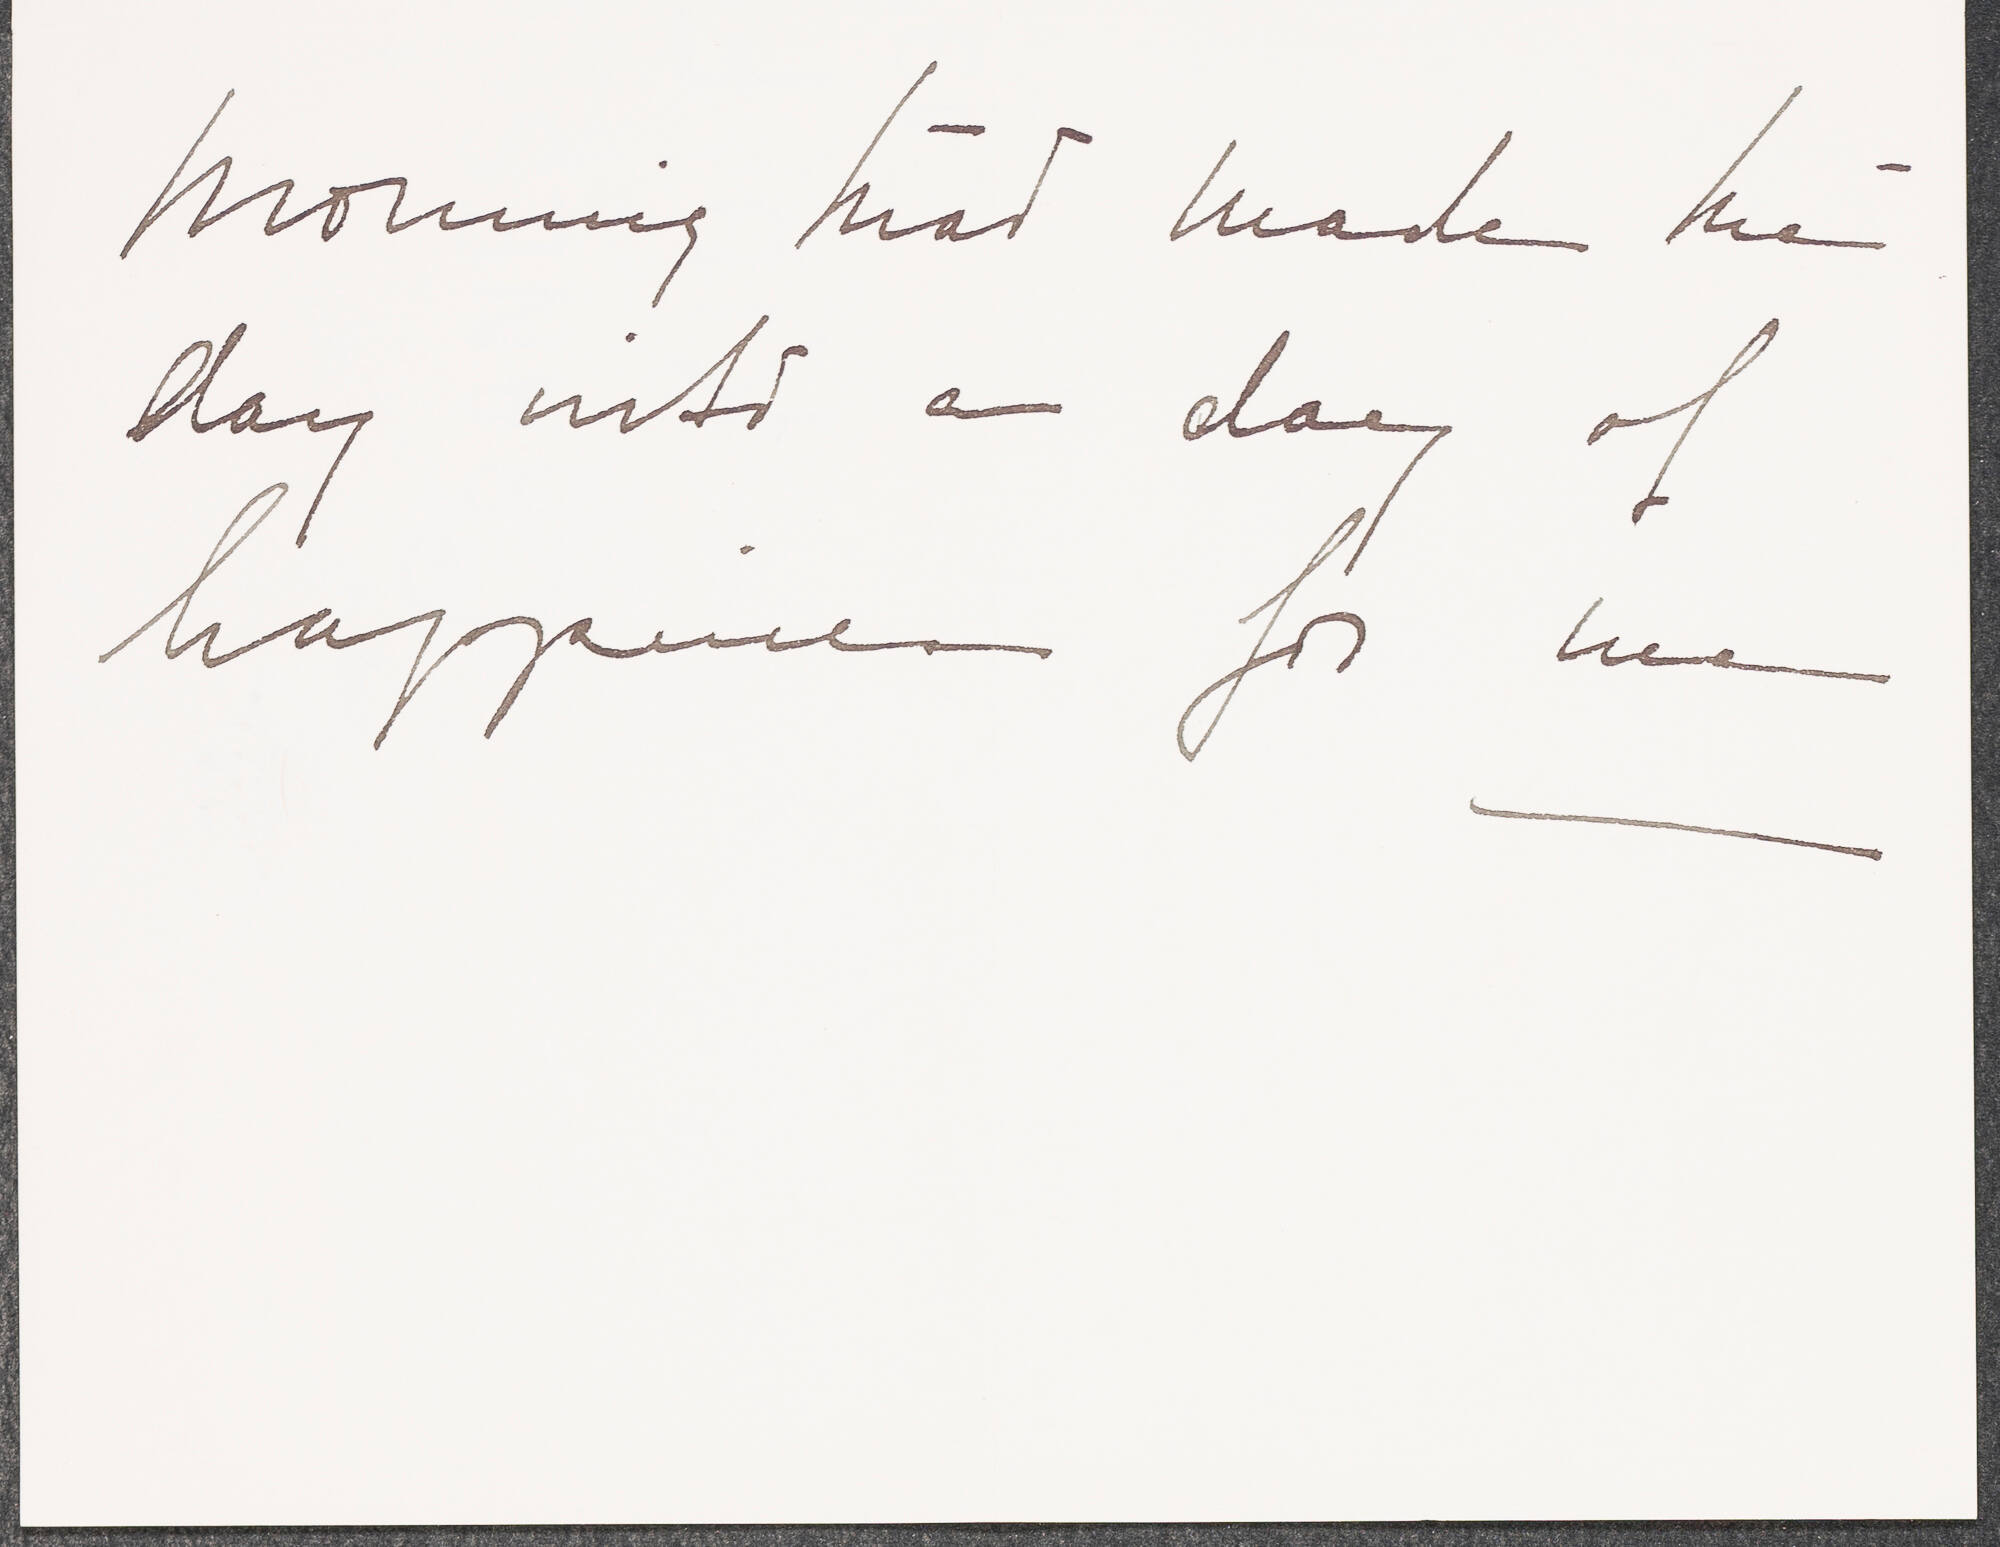 morning that made the
day into a day of
happiness for me